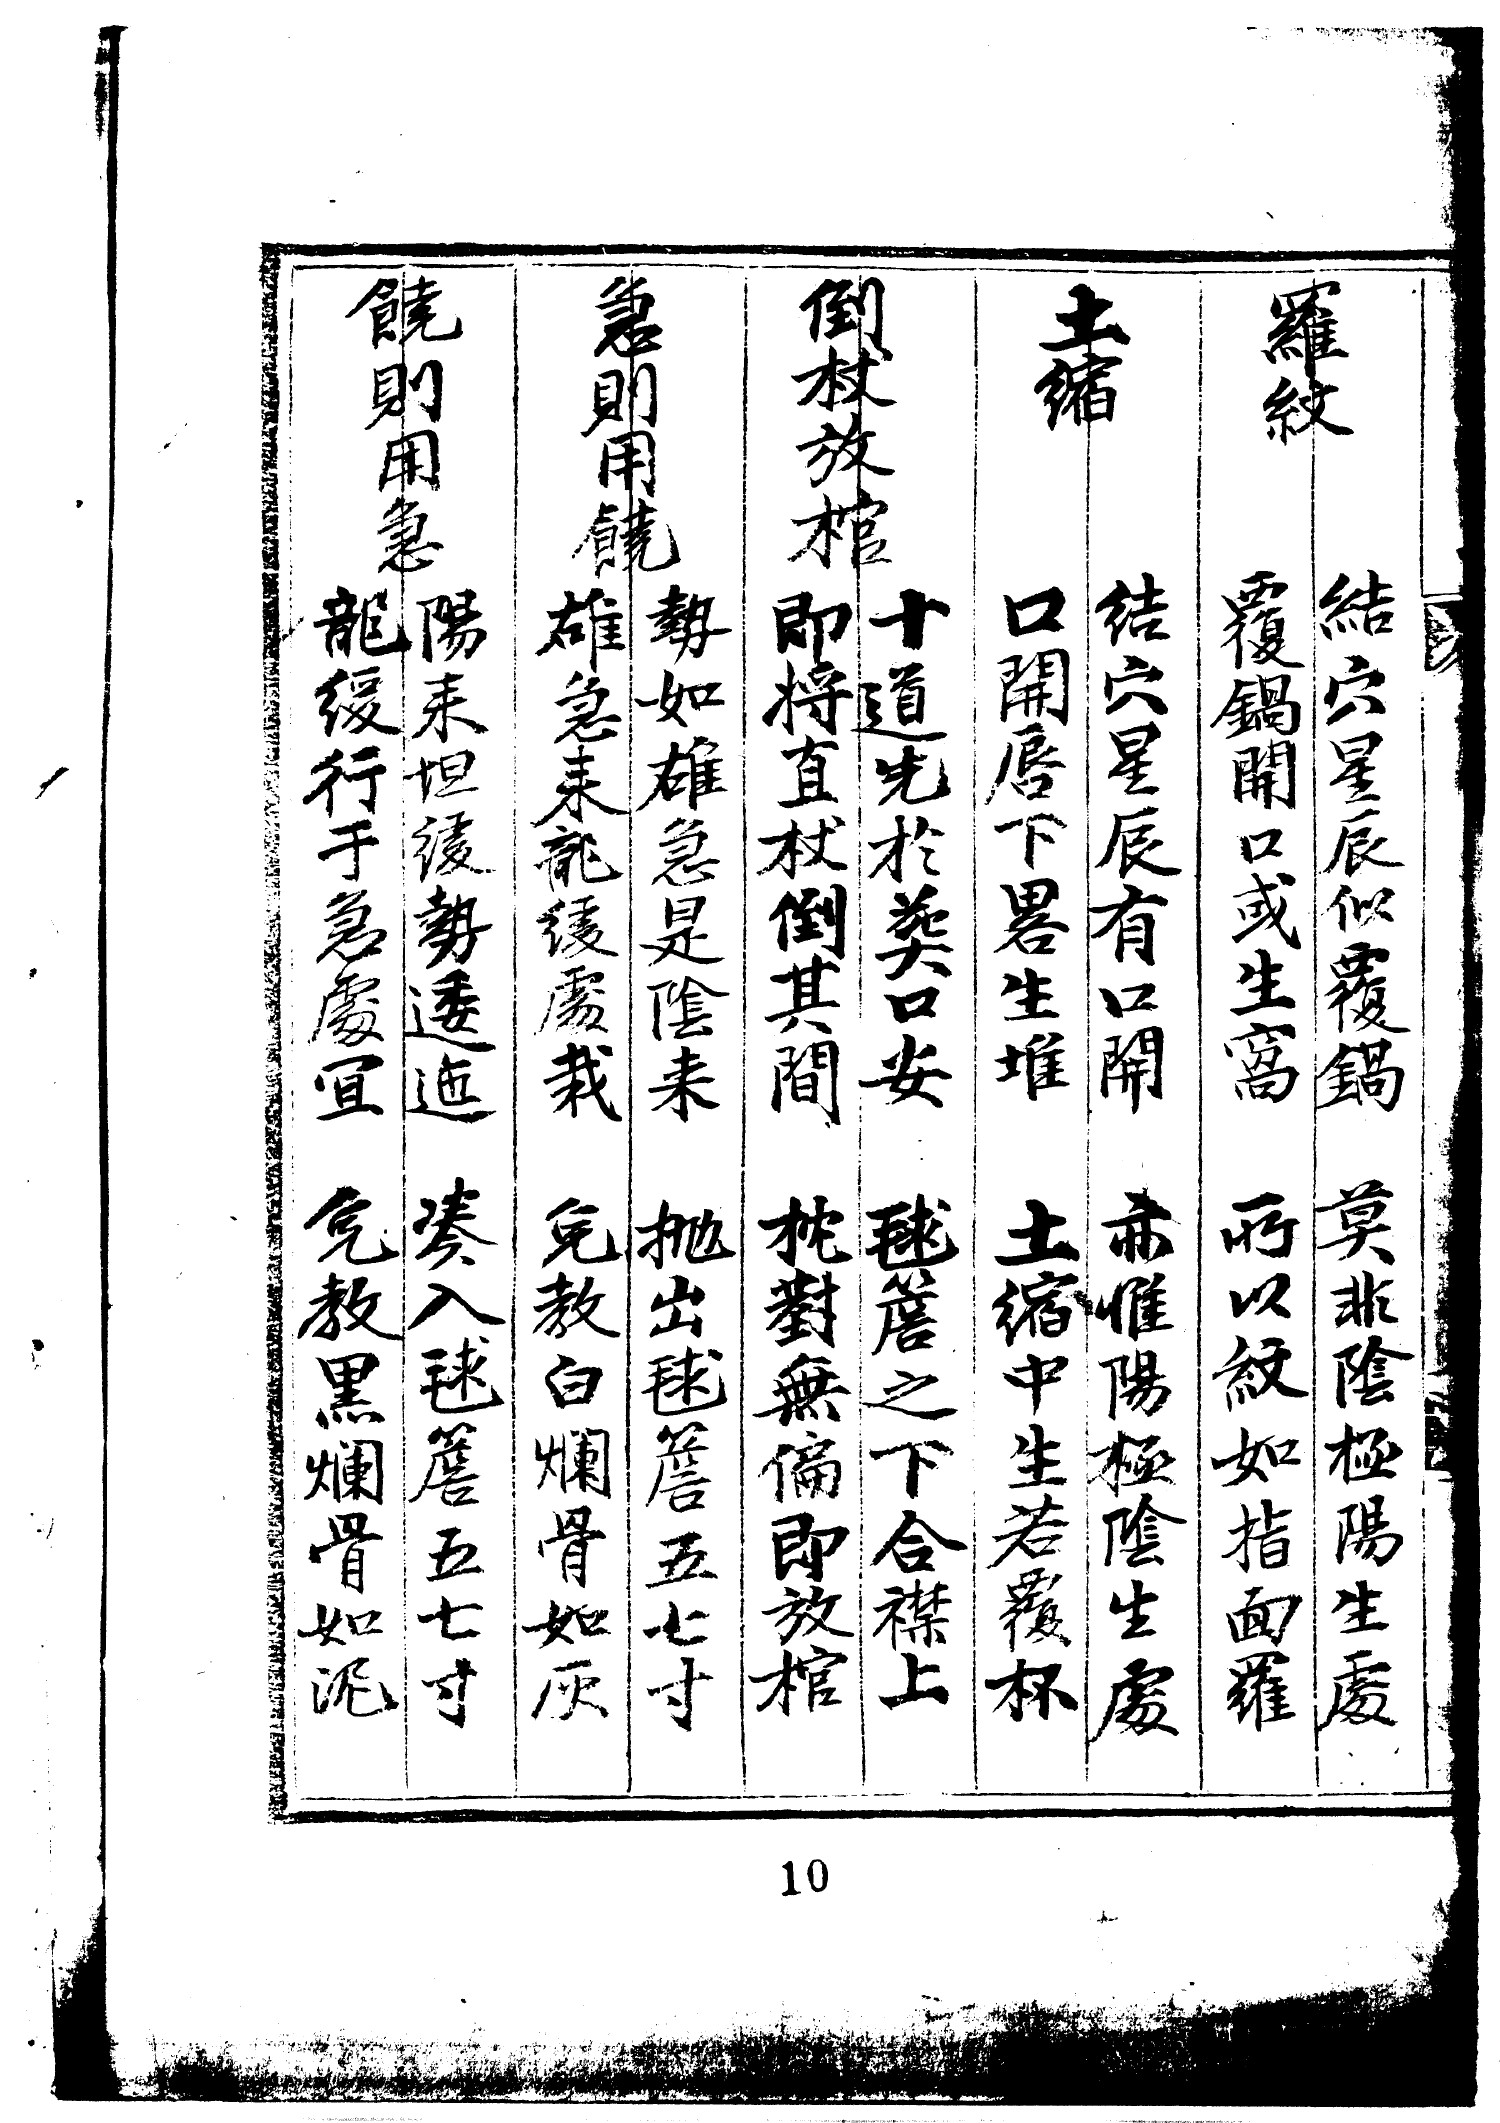 羅紋
結穴星辰似覆鍋　莫非陰極陽生處
覆鍋開口或生窩　所以紋如指面羅
土縮
結穴星辰有口開　亦惟陽極陰生處
口開唇下畧生堆　土縮中生若覆杯
倒杖放棺
十道先於葬口安　毬簷之下合襟上
即将直杖倒其間　枕對無偏即放棺
急則用饒
勢如雄急是陰来　抛出毬簷五七寸
雄急来龍緩處栽　免教白爛骨如灰
饒則用急
陽来坦緩勢逶迤　湊入毬簷五七寸
龍緩行于急處宜　免教黑爛骨如泥
10